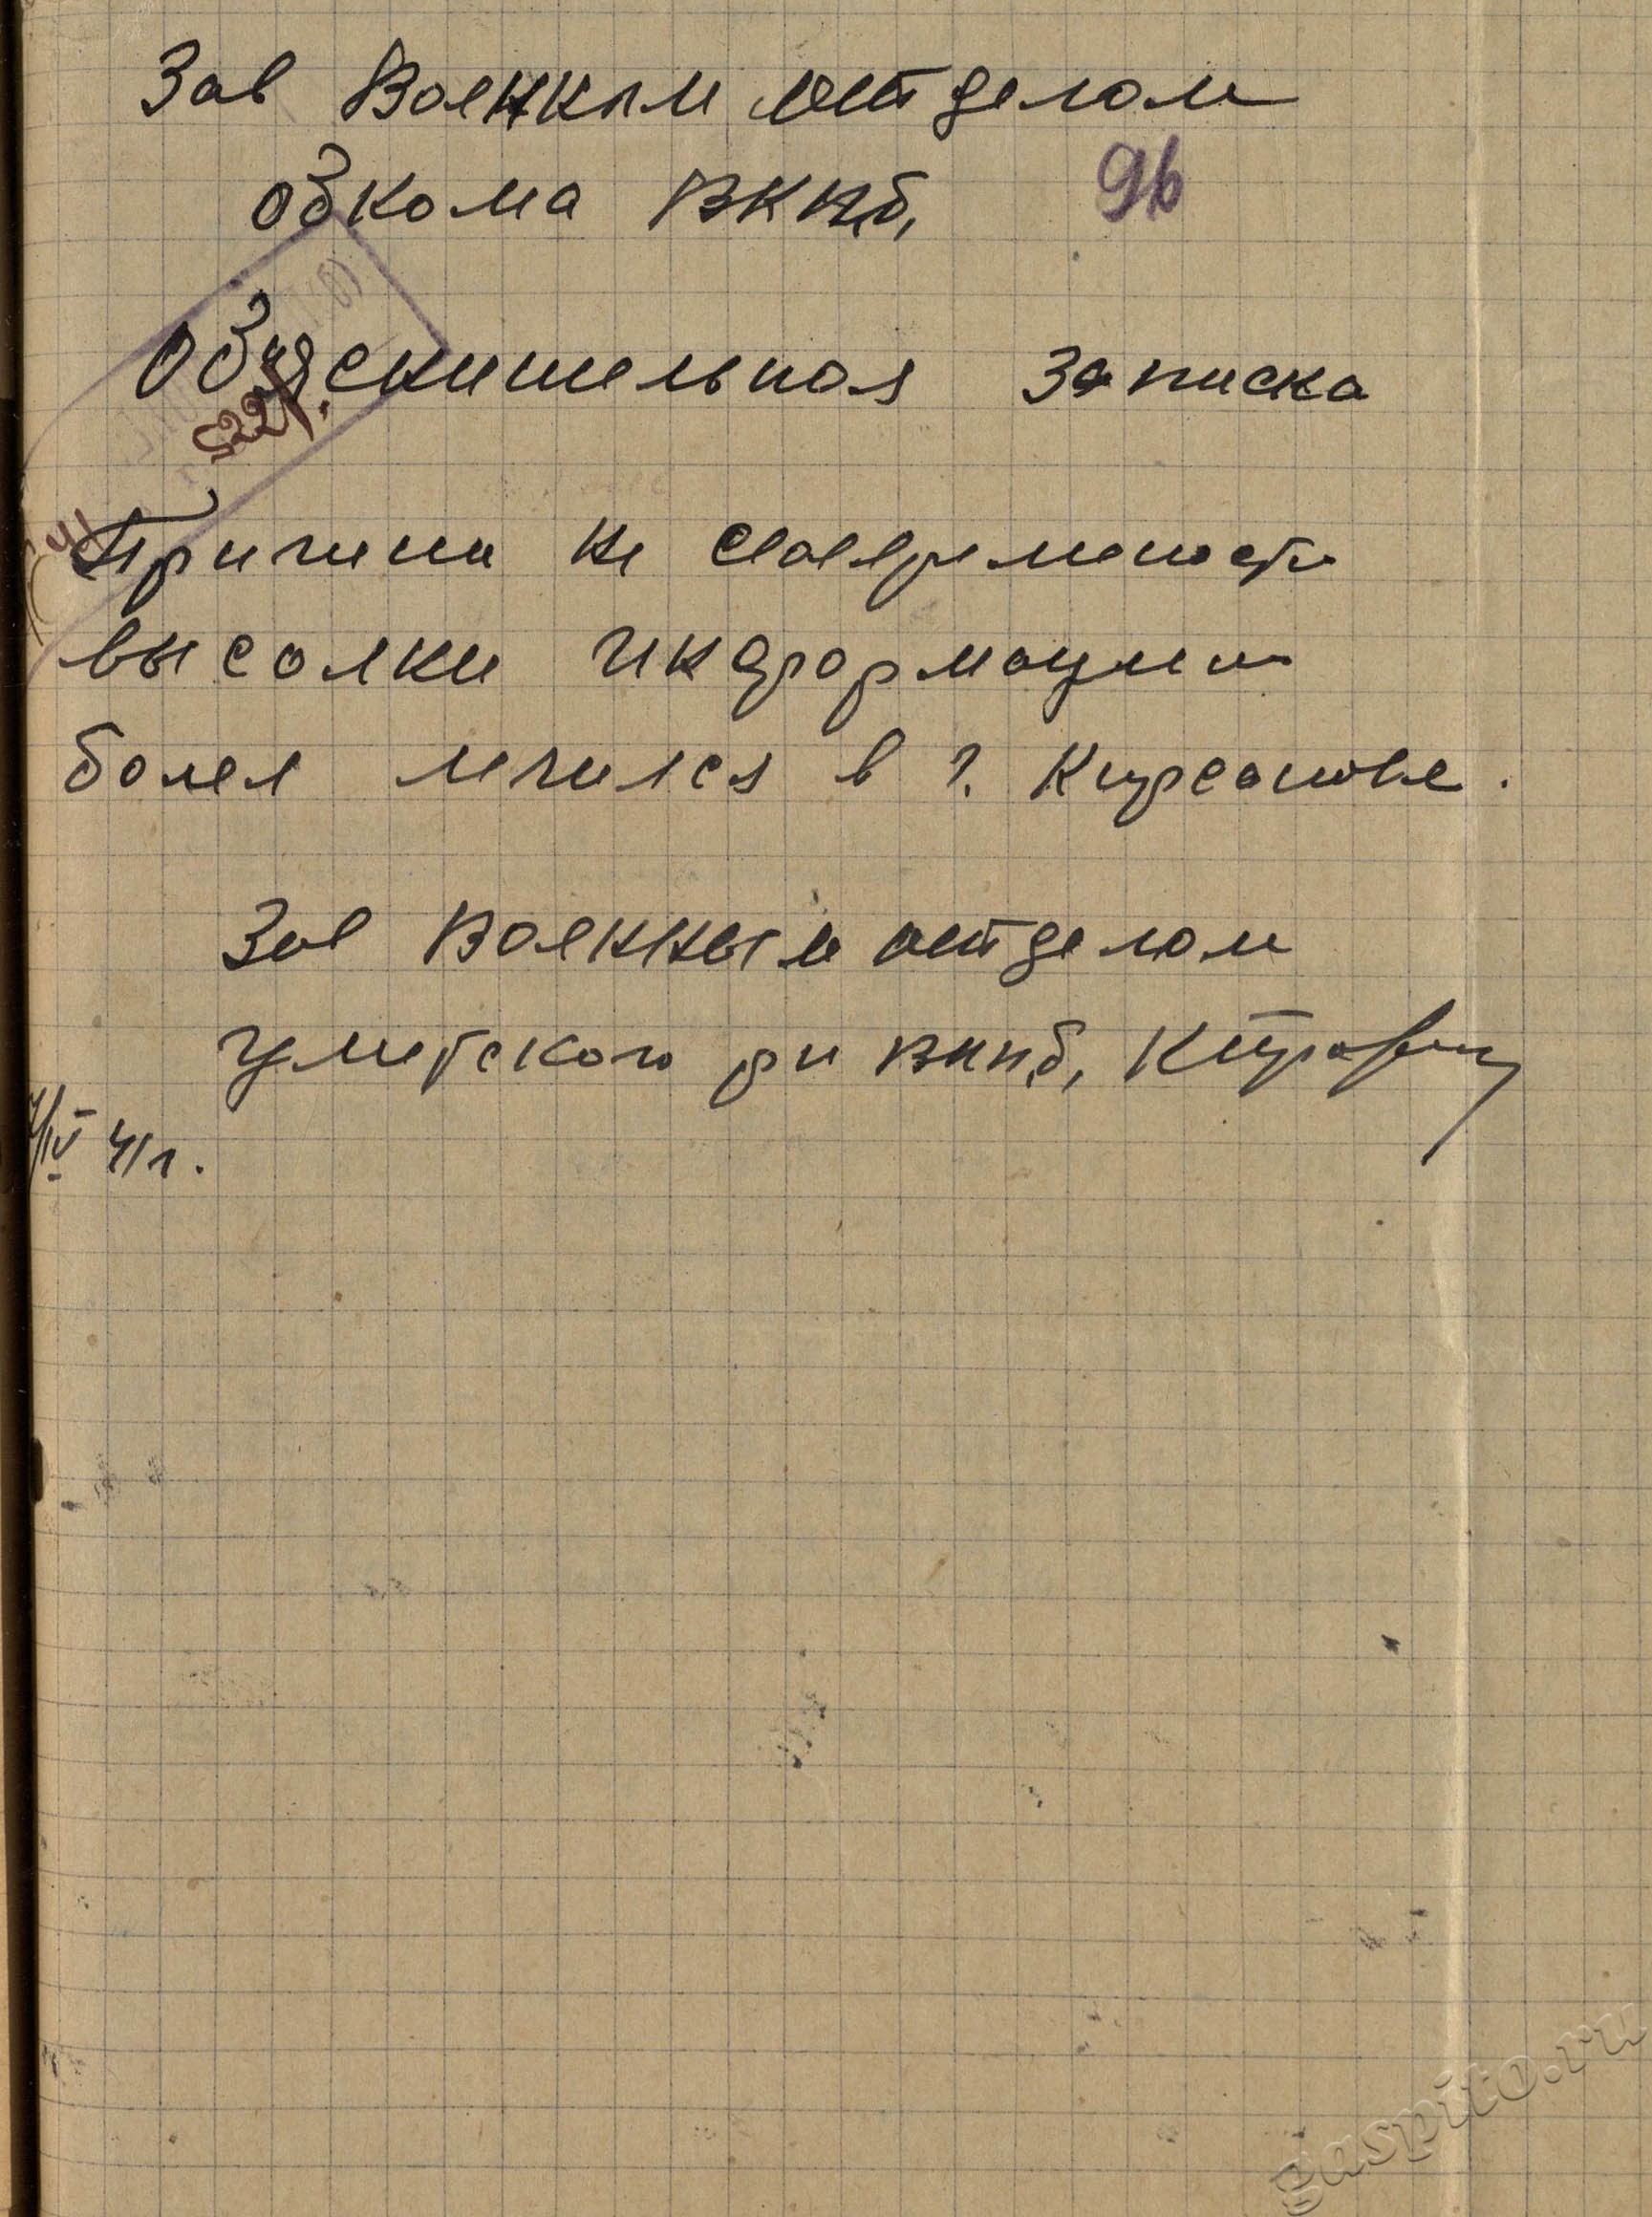 Зав Военным отделом
обкома ВКПб,
96
Объяснительная записка
522
Причина не своевремености
высолки информации
болел лечился в г. Кирсанове.
Зав Военным отделом
Уметского рк ВКПб,
/IV 41г.
gaspito.ru